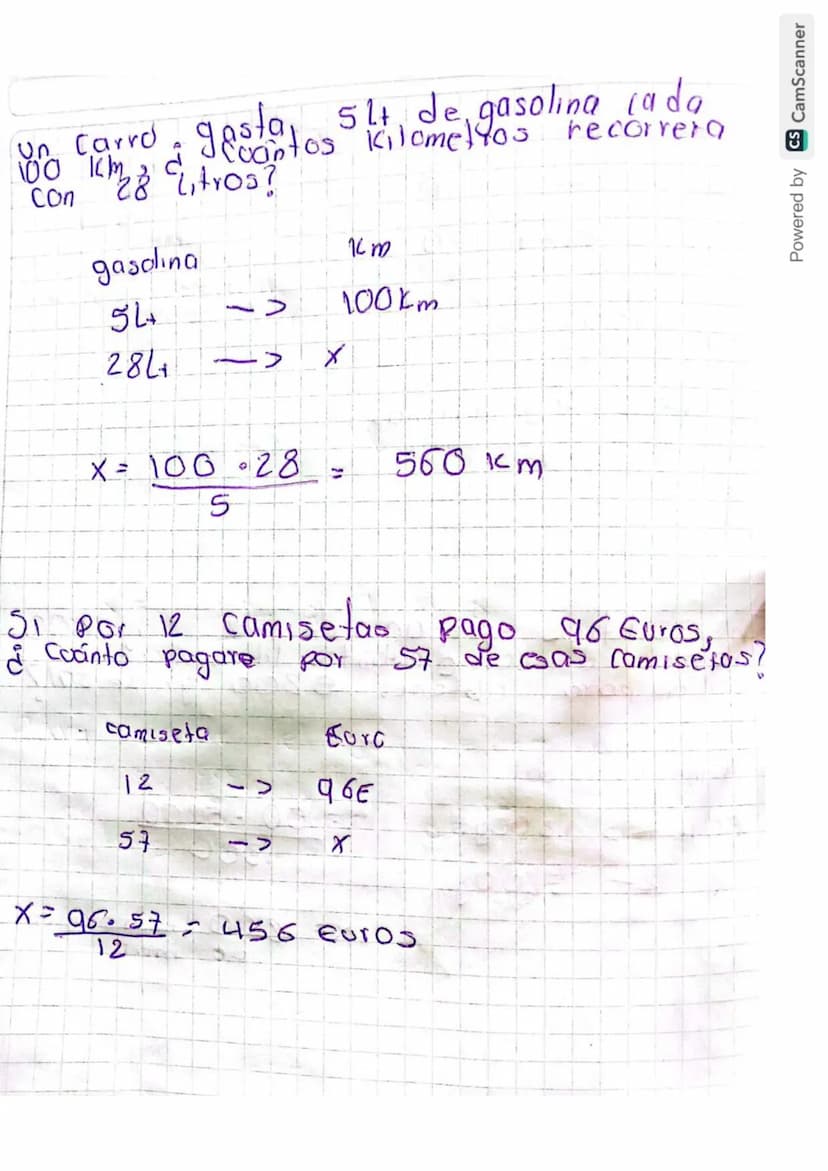 Un carro gasta 5 Lt de gasolina cada
100 km, ¿cuántos kilometros recorrera
con 28 Litros?
gasolina km
5Lt --> 100km
28Lt --> x
x = 100 . 28 = 560 km
5
Si por 12 camisetas pago 96 Euros,
¿ Cuánto pagare por 57 de esas camisetas?
camiseta Euro
12 --> 96€
57 --> x
x = 96. 57 = 456 Euros
12
Powered by CS CamScanner